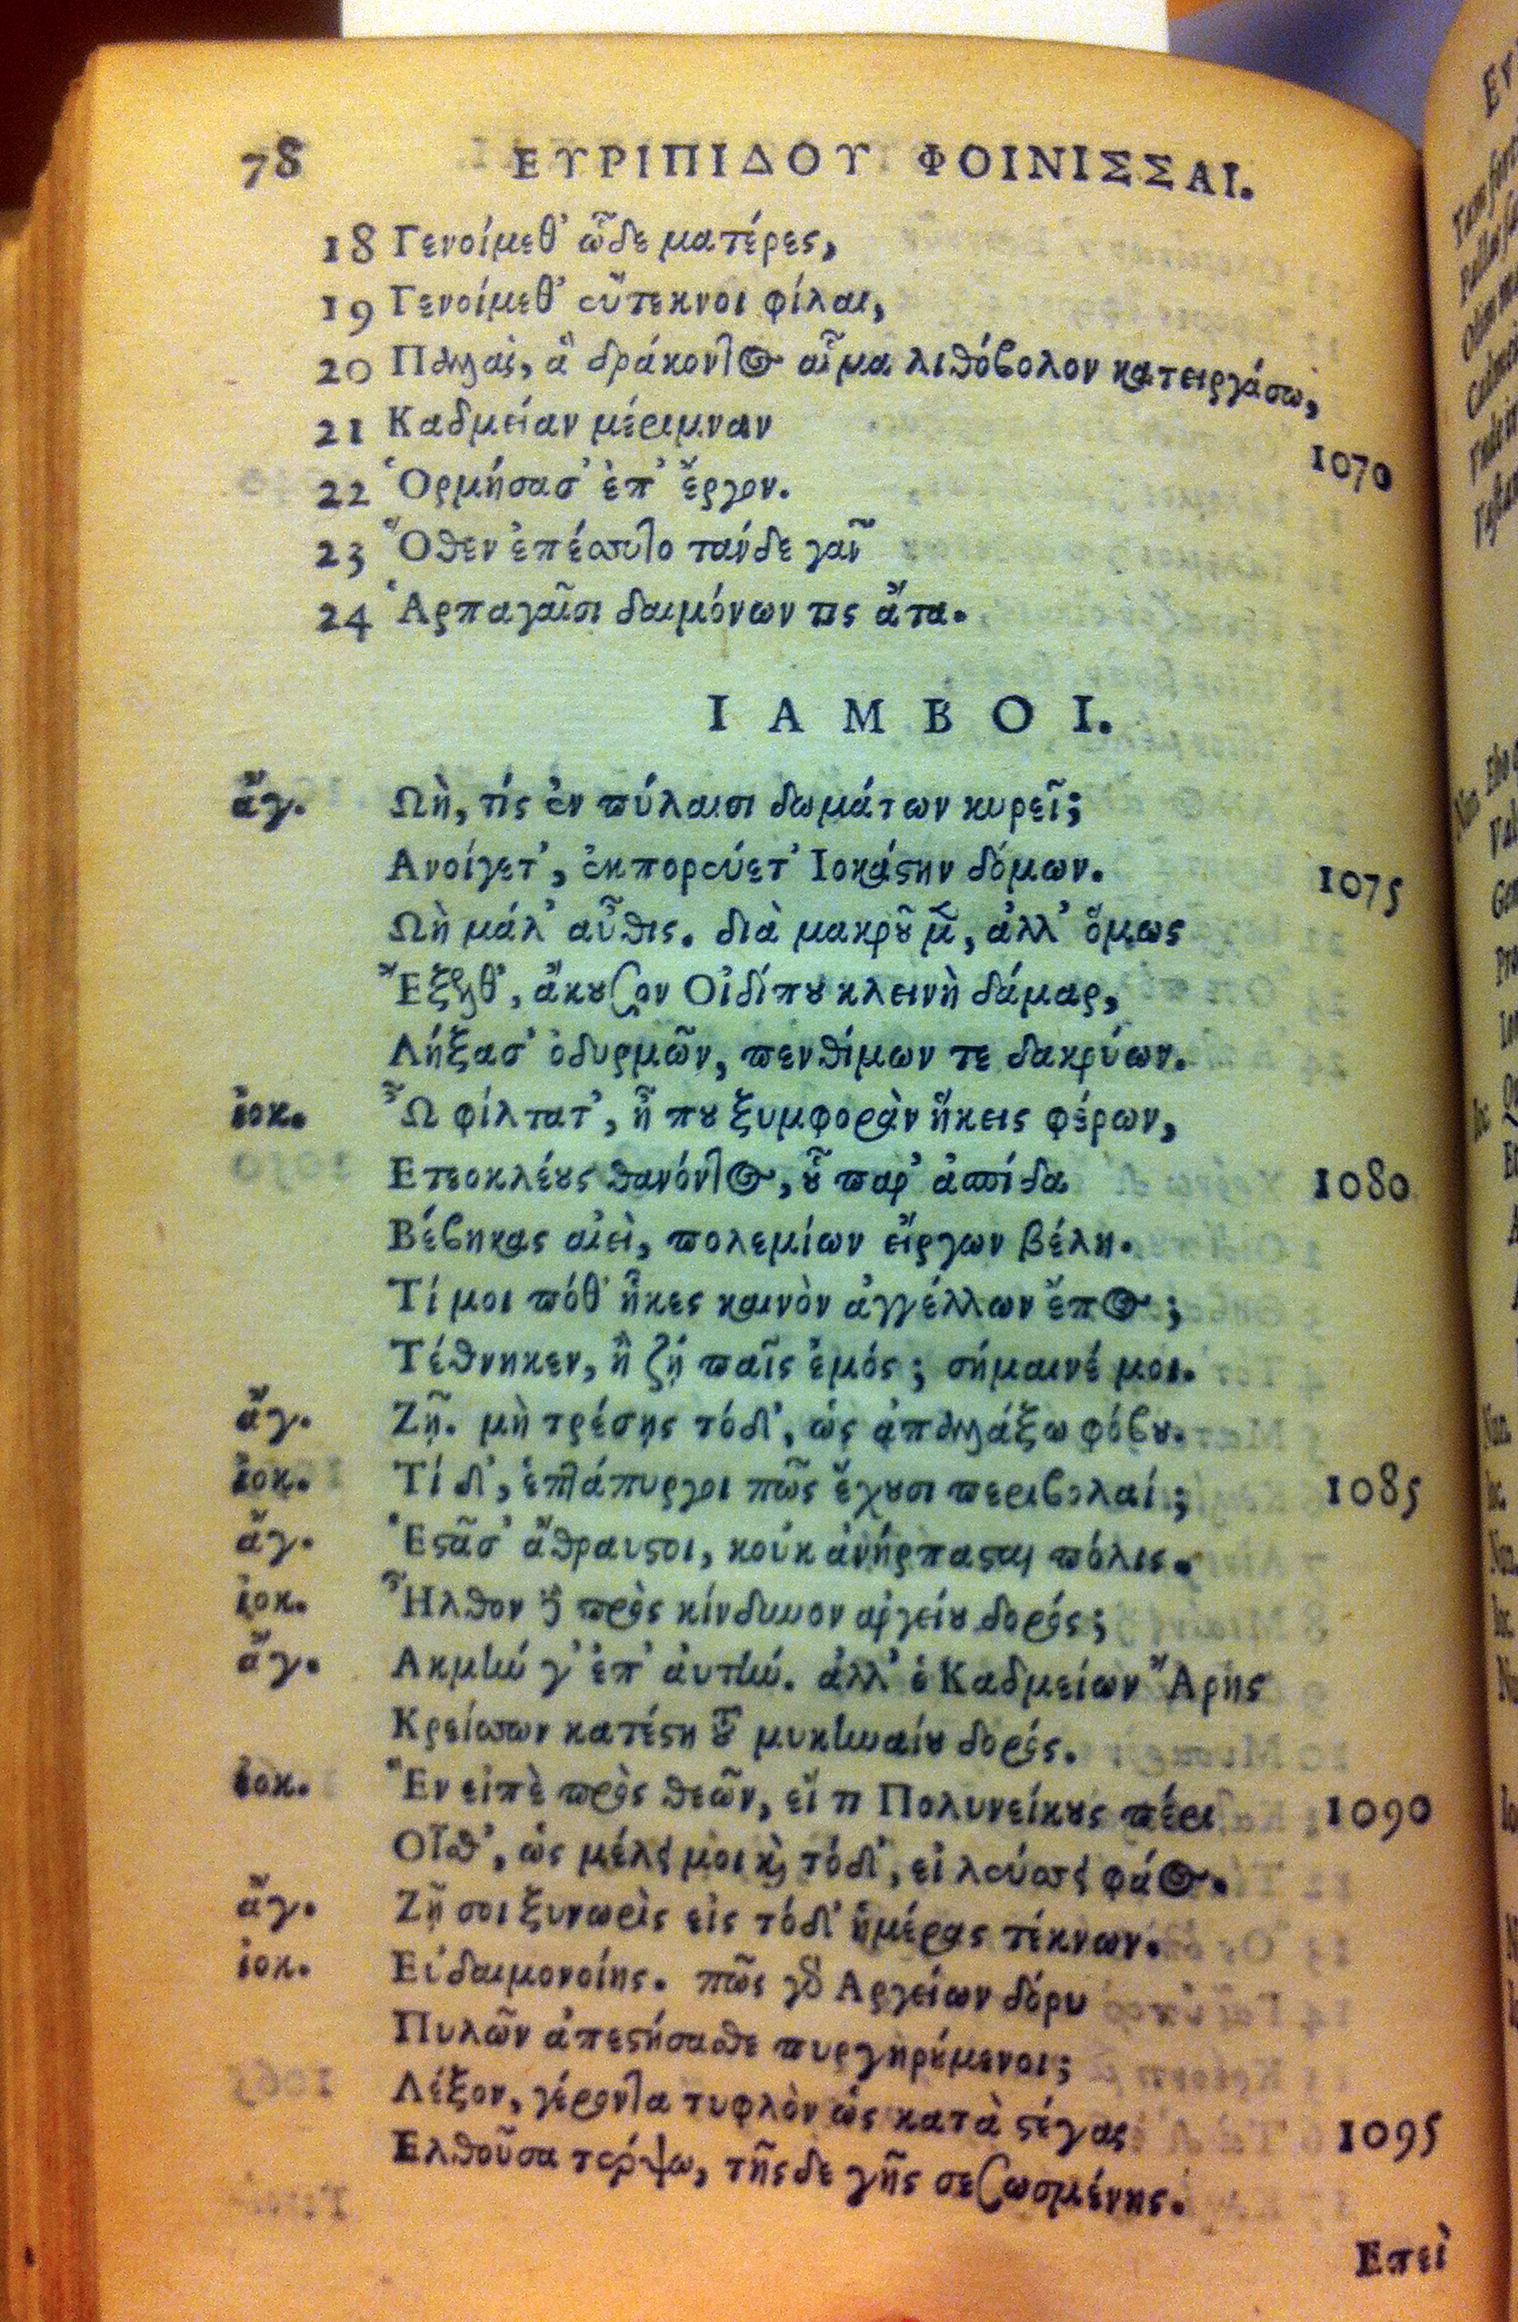 78 ΕΥΡΙΠΙΔΟΥ ΦΟΙΝΙΣΣΑΙ.
18 Γενοίμεθ' ὧδε ματέρες,
19 Γενοίμεθ' εὔτεκνοι φίλαι,
20 Παλλὰς, ἃ δράκοντος αἷμα λιθόβολον κατειργάσω,
21 Καδμείαν μέριμναν
1070
22 Ὁρμήσασ' ἐπ' ἔργον.
23 Ὅθεν ἐπέσσυτο τάνδε γᾶν
24 Ἁρπαγαῖσι δαιμόνων τις ἄτα.
ΙΑΜΒΟΙ.
ἄγ. Ωὴ, τίς ἐν πύλαισι δωμάτων κυρεῖ;
Ανοίγετ', ἐκπορεύετ' Ιοκάστην δόμων. 1075
Ωὴ μάλ' αὖθις. διὰ μακροῦ μὲν, ἀλλ' ὅμως
Ἔξελθ', ἄκουσον Οἰδίπου κλεινὴ δάμαρ,
Λήξασ' ὀδυρμῶν, πενθίμων τε δακρύων.
ἰοκ. Ὦ φίλτατ', ἦ που ξυμφορὰν ἥκεις φέρων,
Ετεοκλέους θανόντος, οὗ παρ' ἀσπίδα 1080
Βέβηκας αἰεὶ, πολεμίων εἴργων βέλη.
Τί μοι πόθ' ἥκεις καινὸν ἀγγέλλων ἔπος;
Τέθνηκεν, ἢ ζῇ παῖς ἐμός; σήμαινέ μοι.
ἄγ. Ζῇ. μὴ τρέσῃς τόδ', ὡς ἀπαλλάξω φόβου.
ἰοκ. Τί δ', ἑπτάπυργοι πῶς ἔχουσι περιβολαί; 1085
ἄγ. Ἑστᾶσ' ἄθραυστοι, κοὐκ ἀνήρπασται πόλις.
ἰοκ. Ἦλθον δὲ πρὸς κίνδυνον αργείου δορός;
ἄγ. Ακμήν γ' ἐπ' ἀυτήν. ἀλλ' ὁ Καδμείων Ἄρης
Κρείσσων κατέστη τοῦ μυκηναίου δορός.
ἰοκ. Ἓν εἰπὲ πρὸς θεῶν, εἴ τι Πολυνείκους πέρι 1090
Οἶσθ', ὡς μέλει μοι καὶ τόδ', εἰ λεύσσει φάος.
ἄγ. Ζῇ σοι ξυνωρὶς εἰς τόδ' ἡμέρας τέκνων.
ἰοκ. Εὐδαιμονοίης. πῶς γὰρ Αργείων δόρυ
Πυλῶν ἀπεστήσασθε πυργηρούμενοι;
Λέξον, γέροντα τυφλὸν ὡς κατὰ στέγας 1095
Ελθοῦσα τέρψω, τῆσδε γῆς σεσωσμένης.
Επεὶ